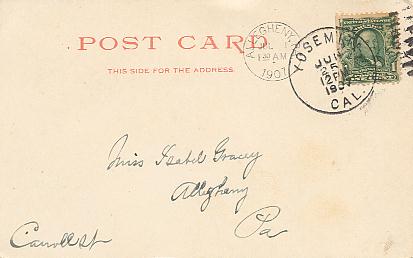 POST CARD
THIS SIDE FOR THE ADDRESS.
ALLEGHENY,
1907
YOSEMI
JUN
25
12
CAL.
1
Miss Isabel Gracey
Allegheny
Pa
Carroll St